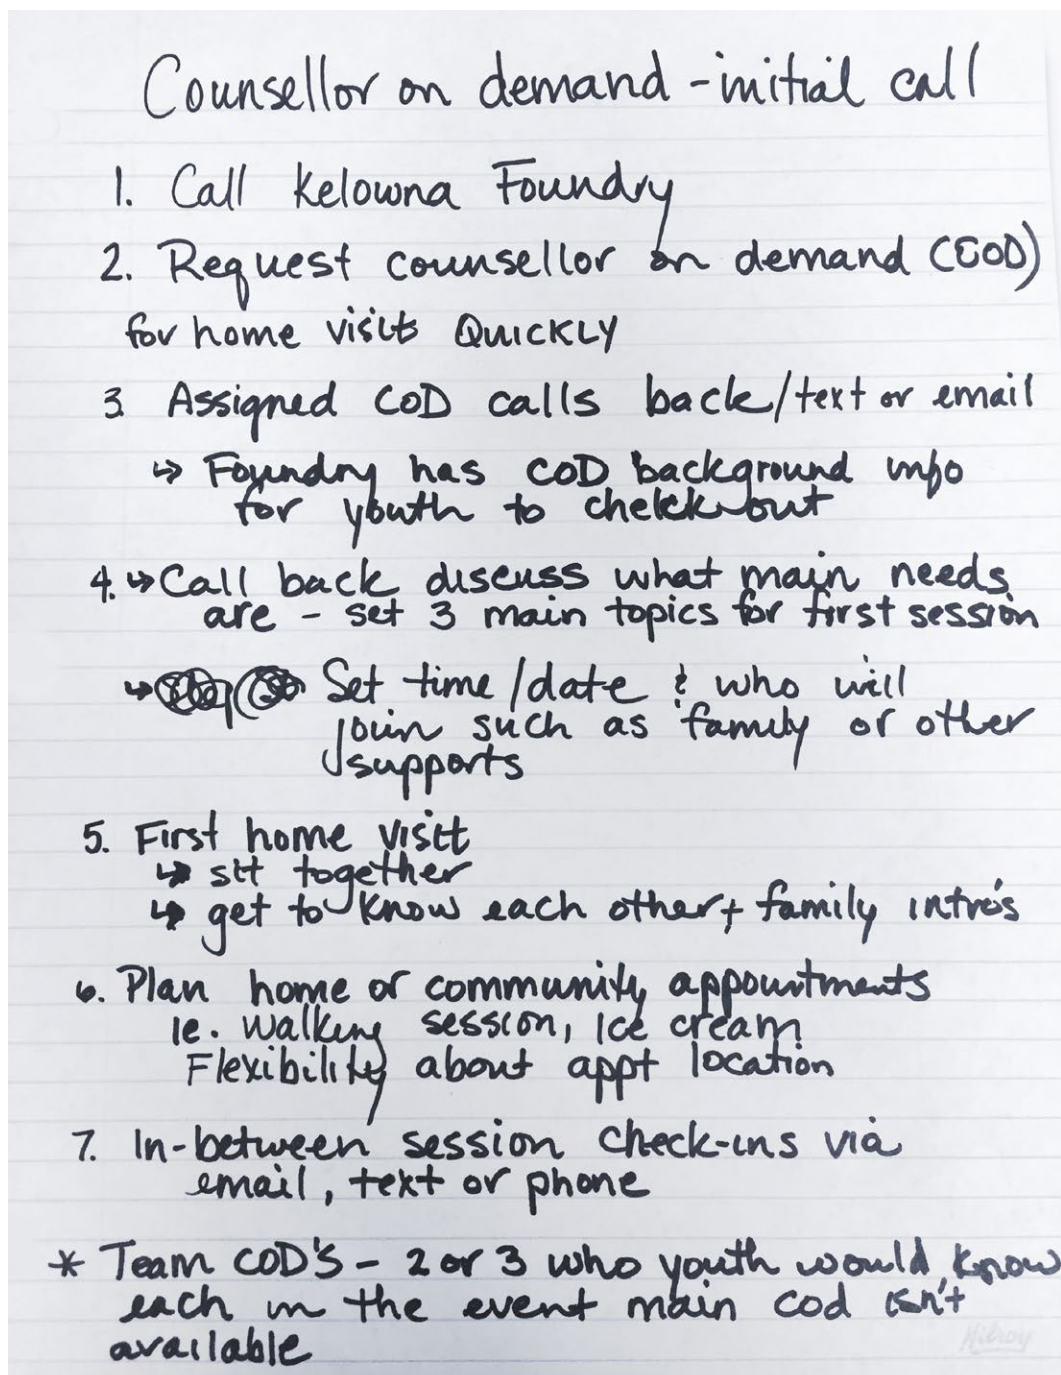 Counsellor on demand - initial call
1. Call Kelowna Foundry
2. Request counsellor on demand (COD)
for home visits QUICKLY
3. Assigned COD calls back/text or email
↳ Foundry has COD background info
for youth to check out
4. ↳ Call back discuss what main needs
are - set 3 main topics for first session
↳ Set time/date & who will
join such as family or other
supports
5. First home visit
↳ sit together
↳ get to know each other + family intro's
6. Plan home or community appointments
ie. walking session, ice cream
Flexibility about appt location
7. In-between session check-ins via
email, text or phone
* Team COD'S - 2 or 3 who youth would know
each in the event main cod isn't
available
Hilroy